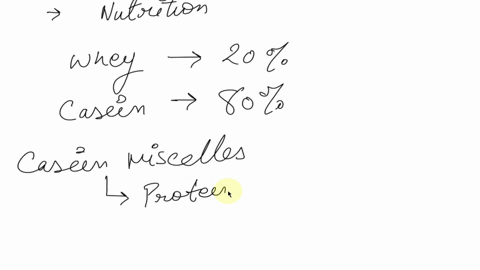 → Nutrition
Whey → 20%
Casein → 80%
Casein miscelles
↳ Protein